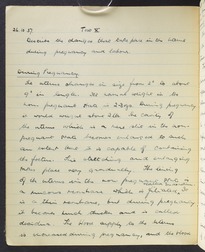 26.10.57 Test X
Describe the changes that take place in the uterus
during pregnancy and labour.
During Pregnancy.
The uterus changes in size from 3" to about
9" in length. The normal weight in the
non pregnant state is 2-3 ozs. During pregnancy
it would weigh about 2 lb. The cavity of
the uterus which is a mere slit in the non-
pregnant state becomes enlarged to such
an extent that it is capable of containing
the foetus. The stretching and enlarging
takes place very gradually. The lining
of the uterus in the non pregnant state is
a mucous membrane
is a thin membrane, but during pregnancy
it becomes much thicker and is called
decidua. The blood supply to the uterus
is increased during pregnancy, and the blood